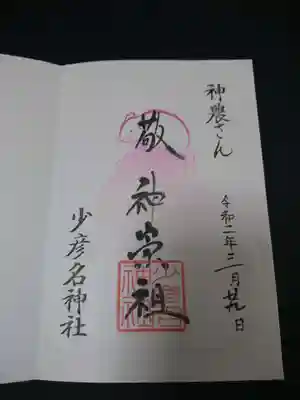 神農さん
令和二年二月廿九日
敬神崇祖
少彦名神社